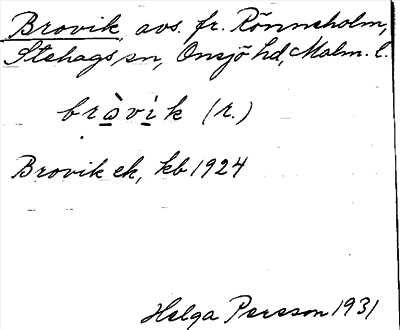 Brovik, avs. fr. Rönneholm,
Stehags sn, Onsjö hd, Malm. l.
bròvìk (r.)
Brovik ek, kb 1924
Helga Persson 1931